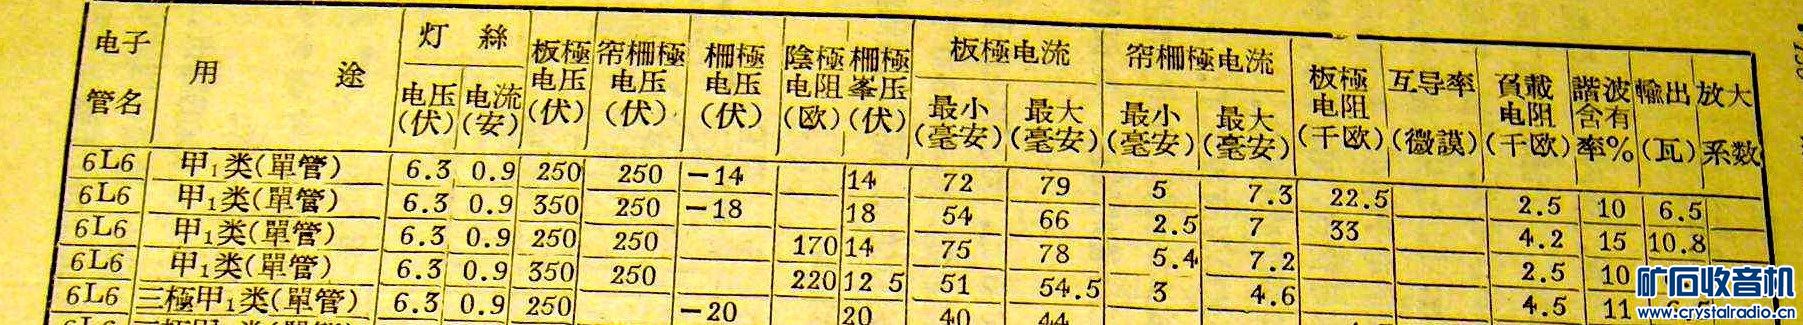 电子管名 用途 灯絲 电压(伏) 电流(安) 板極电压(伏) 帘柵極电压(伏) 柵極电压(伏) 陰極电阻(欧) 柵極峯压(伏) 板極电流 最小(毫安) 最大(毫安) 帘柵極电流 最小(毫安) 最大(毫安) 板極电阻(千欧) 互导率(微謨) 負載电阻(千欧) 諧波含有率% 輸出(瓦) 放大系数
6L6 甲1类(單管) 6.3 0.9 250 250 -14 14 72 79 5 7.3 22.5 2.5 10 6.5
6L6 甲1类(單管) 6.3 0.9 350 250 -18 18 54 66 2.5 7 33 4.2 15 10.8
6L6 甲1类(單管) 6.3 0.9 250 250 170 14 75 78 5.4 7.2 2.5 10
6L6 甲1类(單管) 6.3 0.9 350 250 220 12 5 51 54.5 3 4.6 4.5 11 6.5
6L6 三極甲1类(單管) 6.3 0.9 250 -20 20 40 44
矿石收音机
www.crystalradio.cn